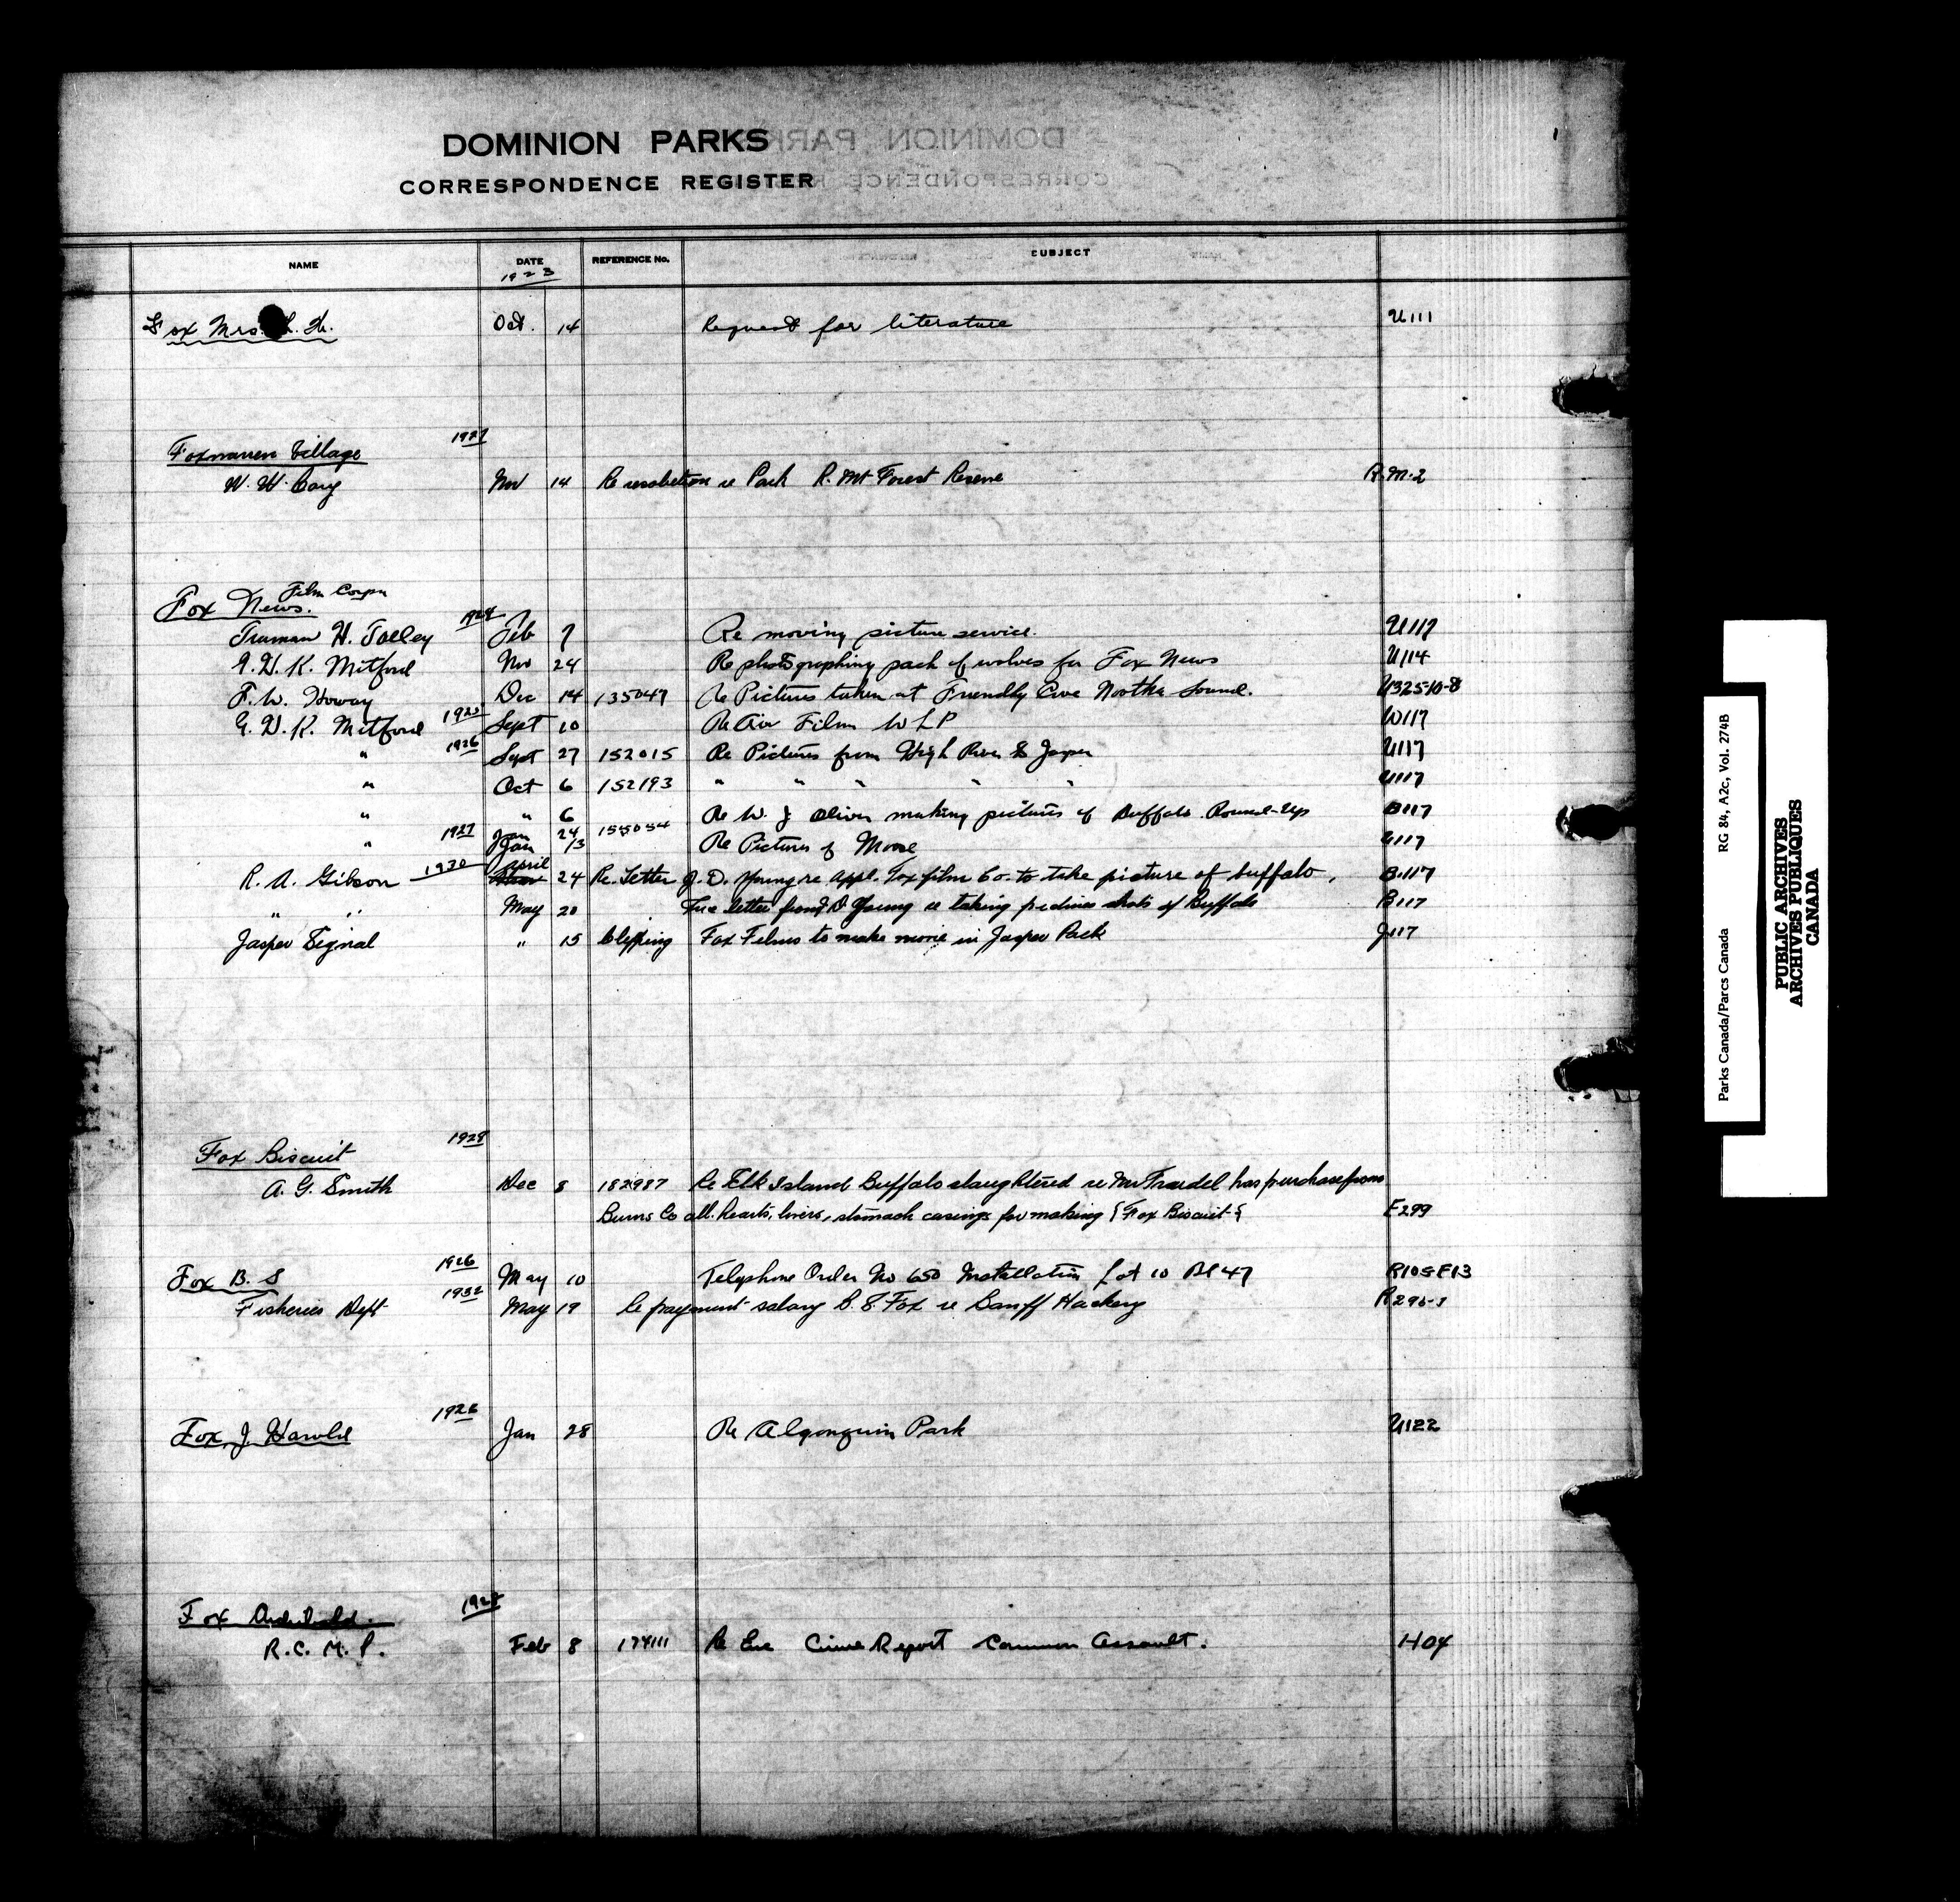 DOMINION PARKS
CORRESPONDENCE REGISTER
NAME DATE REFERENCE No. SUBJECT
1923
Fox Mrs. H. Oct. 14 Request for literature U111
1927
Foxwarren Village
W. W. Cary Nov 14 Re resolution re Park R. Mt Forest Reserve R.M.2
Film Corpn
Fox News.
1924
Truman H. Talley Feb 7 Re moving picture service. U117
G.D.K. Mitford Nov 24 Re photographing pack of wolves for Fox News U114
F. W. Howay Dec 14 135047 Re Pictures taken at Friendly Cove Nootka Sound. U325-10-8
G. D. K. Mitford 1925 Sept 10 Re Air Film W L P W117
" 1926 Sept 27 152015 Re Pictures from High River & Jasper U117
" Oct 6 152193 " " " " " U117
" " 6 Re W. J. Oliver making pictures of Buffalo Round-Up B117
Jan 24 155054
" 1927 Jan /3 Re Pictures of Moose U117
R. A. Gibson 1930 April 24 Re. Letter J. D. Young re appl. Fox film Co. to take picture of buffalo, B.117
" " May 20 letter from J D Young re taking picture shots of Buffalo B117
Jasper Signal " 15 Clipping Fox Films to make movie in Jasper Park J117
1928
Fox Biscuit
A. G. Smith Dec 8 182987 Re Elk Island Buffalo slaughtered re Mr Trudel has purchase from
Burns Co all hearts, livers, stomach casings for making { Fox Biscuit } E299
Fox B. S 1926 May 10 Telephone Order No 650 Installation Lot 10 Bl 47
Fisheries Dept 1932 May 19 Re payment salary B. S. Fox re Banff Hatchery R296-1
1926
Fox, J. Harold Jan 28 Re Algonquin Park U122
Fox Archibald.
R. C. M. P. Feb 8 174111 Re Enc Crime Report Common Assault. H04
Parks Canada/Parcs Canada RG 84, A2c, Vol. 274B
PUBLIC ARCHIVES
ARCHIVES PUBLIQUES
CANADA